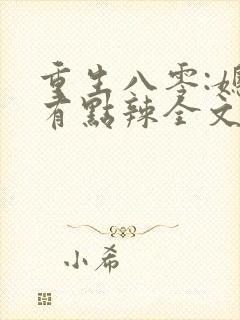 重生八零:媳
有點辣全文
小希